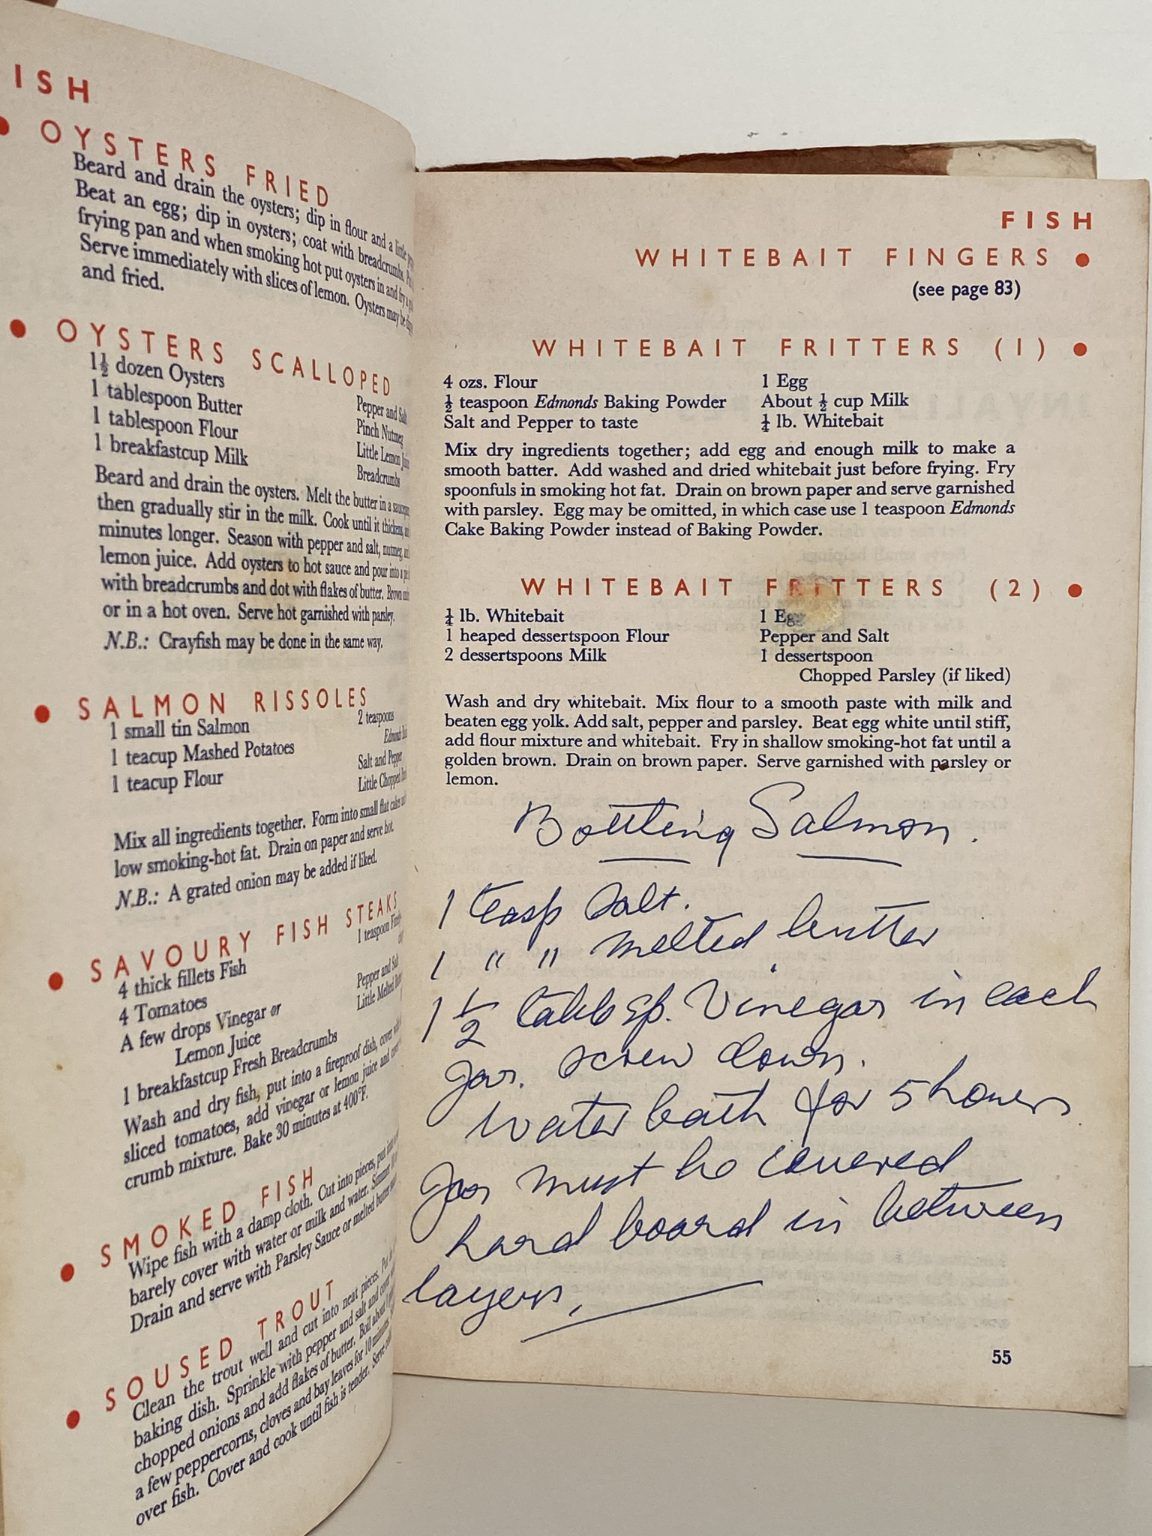 ISH
OYSTERS FRIED
Beard and drain the oysters; dip in flour and a little
Beat an egg; dip in oysters; coat with breadcrumbs.
frying pan and when smoking hot put oysters in and fry
Serve immediately with slices of lemon. Oysters may be
and fried.
OYSTERS SCALLOPED
1½ dozen Oysters
1 tablespoon Butter
1 tablespoon Flour
1 breakfastcup Milk
Pepper and Salt
Pinch Nutmeg
Little Lemon
Breadcrumbs
Beard and drain the oysters. Melt the butter in a
then gradually stir in the milk. Cook until it thickens,
minutes longer. Season with pepper and salt, nutmeg,
lemon juice. Add oysters to hot sauce and pour into a
with breadcrumbs and dot with flakes of butter. Brown
or in a hot oven. Serve hot garnished with parsley.
N.B.: Crayfish may be done in the same way.
SALMON RISSOLES
1 small tin Salmon
1 teacup Mashed Potatoes
1 teacup Flour
2 teaspoons
Edmonds
Salt and Pepper
Little Chopped
Mix all ingredients together. Form into small flat cakes
low smoking-hot fat. Drain on paper and serve hot.
N.B.: A grated onion may be added if liked.
SAVOURY FISH STEAKS
4 thick fillets Fish
4 Tomatoes
A few drops Vinegar or
Lemon Juice
1 breakfastcup Fresh Breadcrumbs
1 teaspoon
Pepper and Salt
Little Melted
Wash and dry fish, put into a fireproof dish, cover
sliced tomatoes, add vinegar or lemon juice and
crumb mixture. Bake 30 minutes at 400°F.
SMOKED FISH
Wipe fish with a damp cloth. Cut into pieces, put
barely cover with water or milk and water. Simmer
Drain and serve with Parsley Sauce or melted butter
SOUSED TROUT
Clean the trout well and cut into neat pieces. Put
baking dish. Sprinkle with pepper and salt and
chopped onions and add flakes of butter. Boil about
a few peppercorns, cloves and bay leaves for 10 minutes
over fish. Cover and cook until fish is tender. Serve
FISH
WHITEBAIT FINGERS
(see page 83)
WHITEBAIT FRITTERS (1)
4 ozs. Flour
½ teaspoon Edmonds Baking Powder
Salt and Pepper to taste
1 Egg
About ½ cup Milk
¼ lb. Whitebait
Mix dry ingredients together; add egg and enough milk to make a
smooth batter. Add washed and dried whitebait just before frying. Fry
spoonfuls in smoking hot fat. Drain on brown paper and serve garnished
with parsley. Egg may be omitted, in which case use 1 teaspoon Edmonds
Cake Baking Powder instead of Baking Powder.
WHITEBAIT FRITTERS (2)
¼ lb. Whitebait
1 heaped dessertspoon Flour
2 dessertspoons Milk
1 Egg
Pepper and Salt
1 dessertspoon
Chopped Parsley (if liked)
Wash and dry whitebait. Mix flour to a smooth paste with milk and
beaten egg yolk. Add salt, pepper and parsley. Beat egg white until stiff,
add flour mixture and whitebait. Fry in shallow smoking-hot fat until a
golden brown. Drain on brown paper. Serve garnished with parsley or
lemon.
Bottling Salmon.
1 teasp Salt.
1 " " melted butter
1½ tablesp. Vinegar in each
Jar. screw down.
Water bath for 5 hours
Jar must be covered
hard board in between
layers.
55